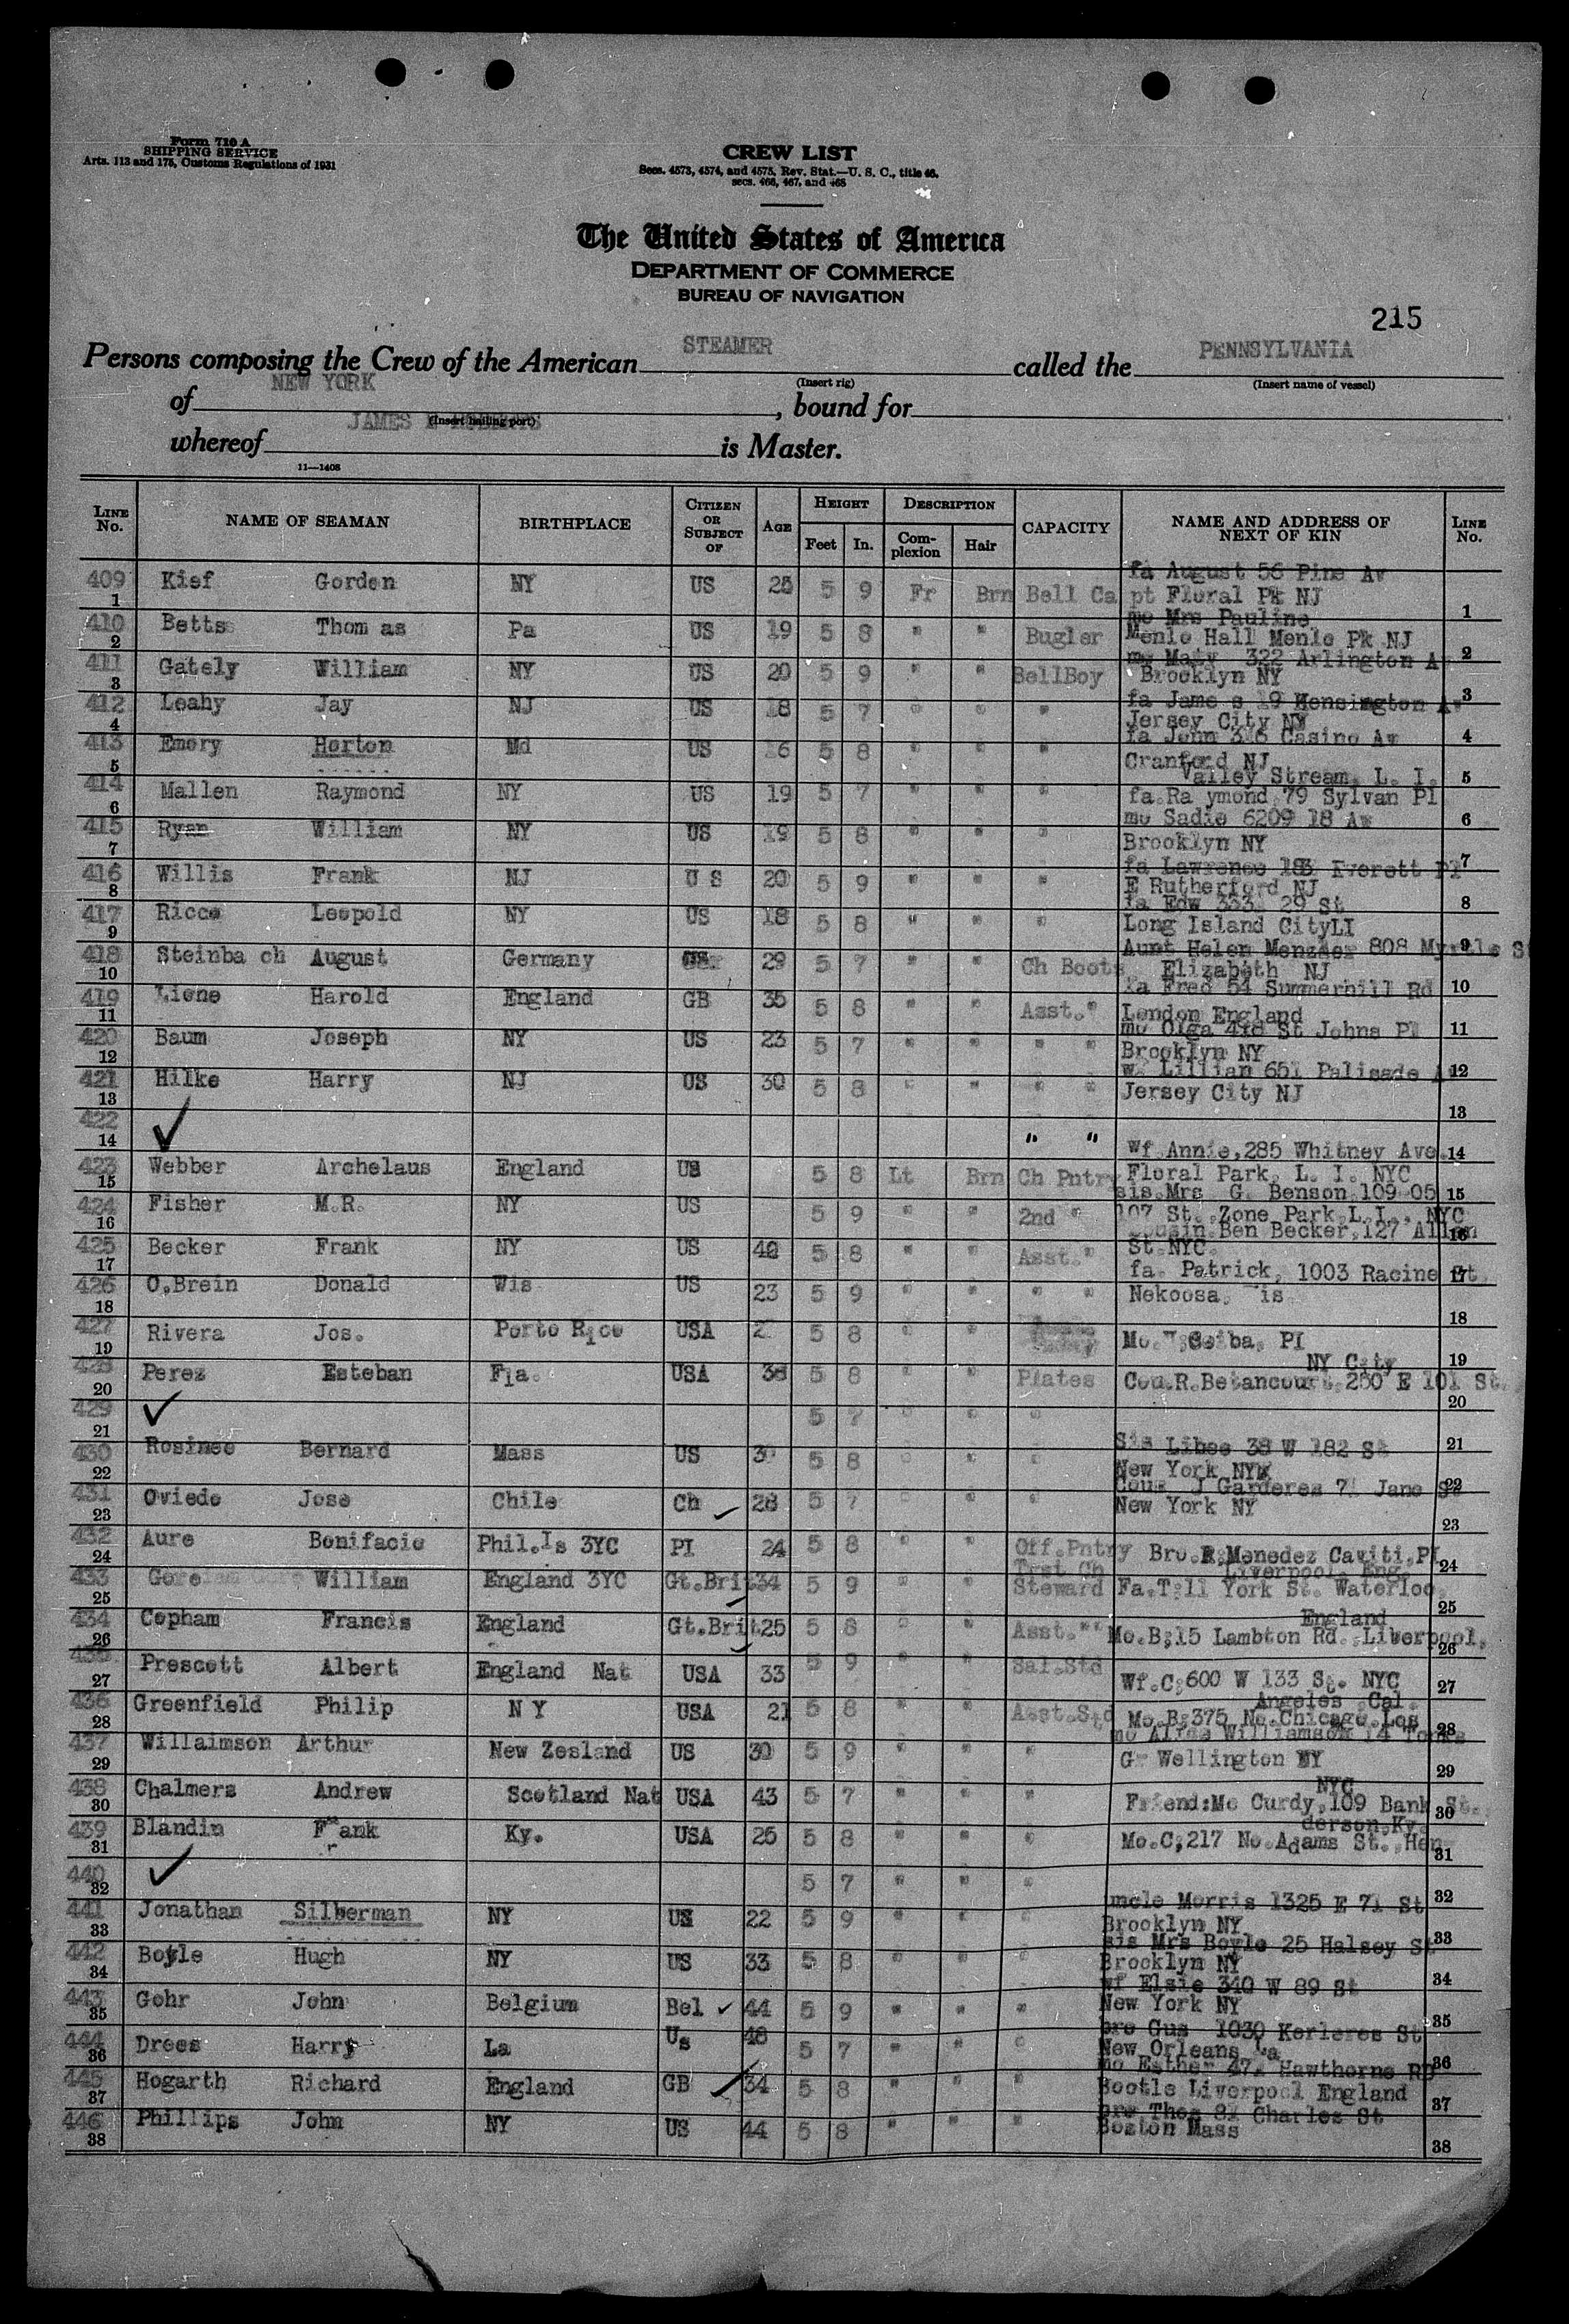 Form 710 A
SHIPPING SERVICE
Arts. 113 and 175, Customs Regulations of 1931
CREW LIST
Secs. 4573, 4574, and 4575, Rev. Stat.—U. S. C., title 46,
secs. 466, 467, and 468
The United States of America
DEPARTMENT OF COMMERCE
BUREAU OF NAVIGATION
215
Persons composing the Crew of the American STEAMER called the PENNSYLVANIA
(Insert rig) (Insert name of vessel)
of NEW YORK, bound for
(Insert hailing port)
whereof JAMES is Master.
11—1408
LINE No. NAME OF SEAMAN BIRTHPLACE CITIZEN OR SUBJECT OF AGE HEIGHT Feet In. DESCRIPTION Complexion Hair CAPACITY NAME AND ADDRESS OF NEXT OF KIN LINE No.
fa August 56 Pine Av
409 1 Kief Gorden NY US 25 5 9 Fr Brn Bell Ca pt Floral Pk NJ 1
mo Mrs Pauline
410 2 Betts Thom as Pa US 19 5 8 " " Bugler Menlo Hall Menlo Pk NJ 2
mo Mary 322 Arlington Av
411 3 Gately William NY US 20 5 9 " " BellBoy Brooklyn NY 3
fa Jame s 19 Kensington Av
412 4 Leahy Jay NJ US 18 5 7 " " " Jersey City NY 4
fa John 316 Casino Av
413 5 Emory Horton Md US 16 5 8 " " " Cranford NJ 5
Valley Stream, L. I.
414 6 Mallen Raymond NY US 19 5 7 " " " fa.Ra ymond 79 Sylvan Pl 6
mo Sadie 6209 18 Av
415 7 Ryan William NY US 19 5 8 " " " Brooklyn NY 7
fa Lawrence 183 Everett Pl
416 8 Willis Frank NJ U S 20 5 9 " " " E Rutherford NJ 8
fa Edw 3331 29 St
417 9 Ricco Leopold NY US 18 5 8 " " " Long Island CityLI 9
Aunt Helen 808 Myrtle St
418 10 Steinba ch August Germany 29 5 7 " " Ch Boots Elizabeth NJ 10
fa Fred 54 Summerhill Rd
419 11 Liene Harold England GB 35 5 8 " " Asst." London England 11
mo Olga 418 St Johns Pl
420 12 Baum Joseph NY US 23 5 7 " " " " Brooklyn NY 12
w Lillian 651 Palisade
421 13 Hilke Harry NJ US 30 5 8 " " " " Jersey City NJ 13
422 14 ✓ " " 14
wf.Annie,285 Whitney Ave.
423 15 Webber Archelaus England US 5 8 Lt Brn Ch Pntry Floral Park, L. I. NYC 15
sis.Mrs G. Benson,109 05
424 16 Fisher M.R. NY US 5 9 " " 2nd " 107 St. Zone Park,L.I., NYC 16
Cousin Ben Becker,127 Allen
425 17 Becker Frank NY US 40 5 8 " " Asst. " St.NYC. 17
fa. Patrick, 1003 Racine St
426 18 O.Brein Donald Wis US 23 5 9 " " " " Nekoosa, is 18
427 19 Rivera Jos. Porto Rico USA 5 8 " " Ceiba, PI 19
NY City
428 20 Perez Esteban Fla. USA 36 5 8 " " Plates Cou.R.Betancourt,250 E 101 St. 20
429 21 ✓ 5 7 " " " 21
Sis Libee 38 W 182 St
430 22 Bernard Mass US 30 5 8 " " " New York NY 22
Cous J Garderes 71 Jane St
431 23 Oviedo Jose Chile Ch ✓ 28 5 7 " " " New York NY 23
432 24 Aure Bonifacio Phil.Is 3YC PI 24 5 8 " " Off.Pntry Bro.R;Menedez Caviti,PI 24
Trst Ch Liverpool, Eng.
433 25 Gore William England 3YC Gt.Brit 34 5 9 " " Steward Fa.T;11 York St. Waterloo, 25
England
434 26 Copham Francis England Gt.Brit 25 5 8 " " Asst."" Mo.B;15 Lambton Rd. Liverpool, 26
435 27 Prescott Albert England Nat USA 33 5 9 " " Sal.Std Wf.C;600 W 133 St. NYC 27
Angeles Cal.
436 28 Greenfield Philip N Y USA 21 5 8 " " Asst.Std Mo.B;375 No.Chicago,Los 28
mo Alice Williamson 14
437 29 Willaimson Arthur New Zesland US 30 5 9 " " " Wellington NY 29
NYC
438 30 Chalmers Andrew Scotland Nat USA 43 5 7 " " " Friend:Mc Curdy,109 Bank St. 30
derson,Ky.
439 31 Blandin Frank Ky. USA 25 5 8 " " " Mo.C;217 No.Adams St.,Hen- 31
440 32 ✓ 5 7 " " " 32
uncle Morris 1325 E 71 St
441 33 Jonathan Silberman NY US 22 5 9 " " " Brooklyn NY 33
sis Mrs Boyle 25 Halsey St
442 34 Boyle Hugh NY US 33 5 8 " " " Brooklyn NY 34
wf Elsie 340 W 89 St
443 35 Gohr John Belgium Bel ✓ 44 5 9 " " " New York NY 35
bro Gus 1030 Kerleres St
444 36 Drees Harry La Us 48 5 7 " " " New Orleans La 36
mo Esther 471 Hawthorne RD
445 37 Hogarth Richard England GB ✓ 34 5 8 " " " Bootle Liverpool England 37
bro Thos 81 Charles St
446 38 Phillips John NY US 44 5 8 " " " Boston Mass 38